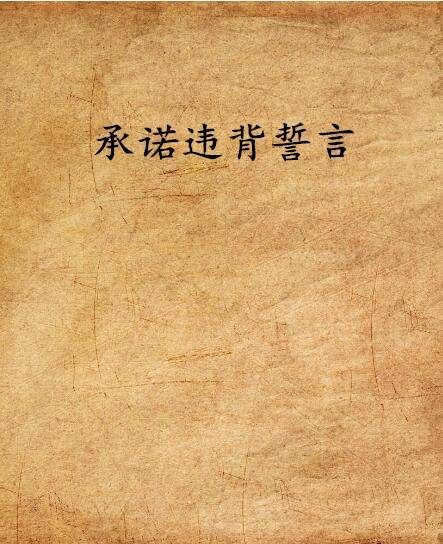 承诺违背誓言